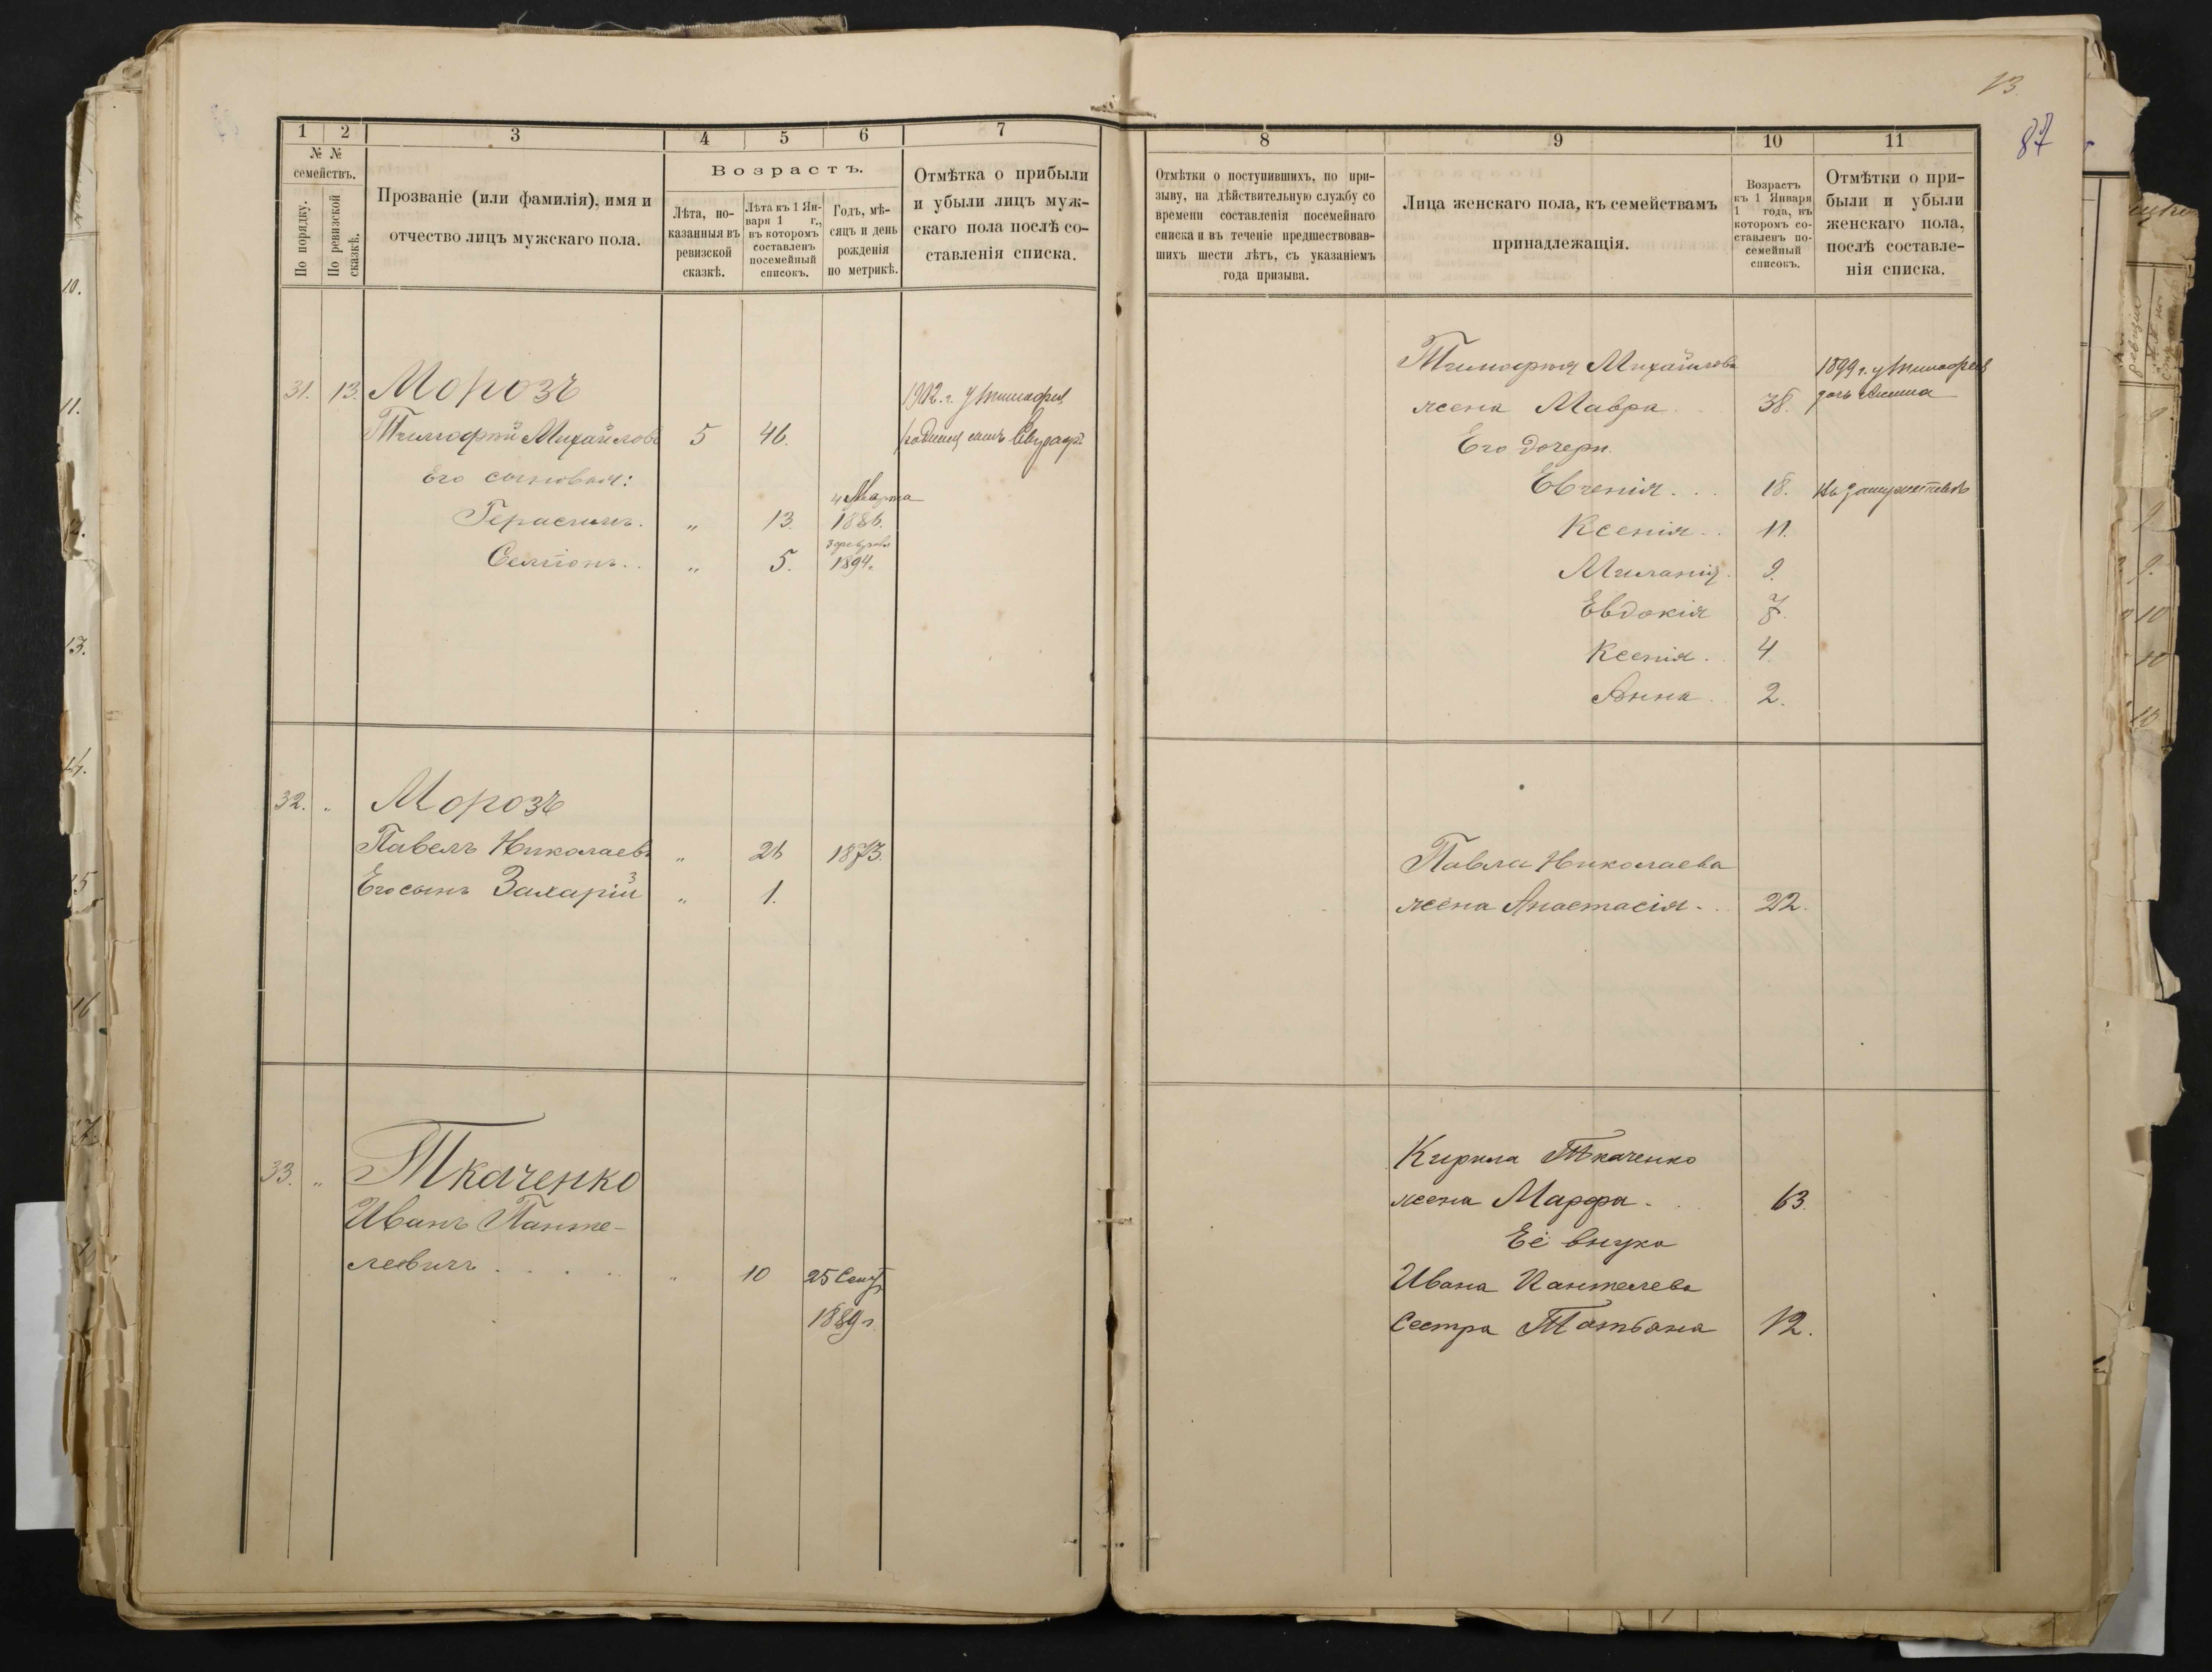 13.
87
1 2 3 4 5 6 7
№ №
семействъ.
По порядку.
По ревизской
сказкѣ.
Прозваніе (или фамилія), имя и
отчество лицъ мужскаго пола.
Возрастъ.
Лѣта, по-
казанныя въ
ревизской
сказкѣ.
Лѣта къ 1 Ян-
варя 1 г.,
въ которомъ
составленъ
посемейный
списокъ.
Годъ, мѣ-
сяцъ и день
рожденія
по метрикѣ.
Отмѣтка о прибыли
и убыли лицъ муж-
скаго пола послѣ со-
ставленія списка.
31. 13. Морозъ
1902 г. у Тимофея
Тимофей Михайловъ 5 46.
родился сынъ
Его сыновья:
4 Марта
Герасимъ. " 13. 1886.
3 февраля
Семіонъ. . " 5. 1894.
32. " Морозъ
Павелъ Николаевъ " 26 1873.
Его сынъ Захарій " 1.
33. " Ткаченко
Иванъ Панте-
леевичъ . . . . . " 10 25 Сент
1889 г.
8 9 10 11
Отмѣтки о поступившихъ, по при-
зыву, на дѣйствительную службу со
времени составленія посемейнаго
списка и въ теченіе предшествовав-
шихъ шести лѣтъ, съ указаніемъ
года призыва.
Лица женскаго пола, къ семействамъ
принадлежащія.
Возрастъ
къ 1 Января
1 года, въ
которомъ со-
ставленъ по-
семейный
списокъ.
Отмѣтки о при-
были и убыли
женскаго пола,
послѣ составле-
нія списка.
Тимофея Михайлова 1899 г. у Тимофея
жена Мавра. . 38. дочь
Его дочери.
Евгенія. . . 18. въ замужествѣ
Ксенія. . . 11.
Миланія. 9.
Евдокія
Ксенія. . 4.
Анна . 2.
Павла Николаева
жена Анастасія. . . 22.
Кирила Ткаченко
жена Марфа. . . 63.
Её внука
Ивана Пантелева
Сестра Татьяна 12.